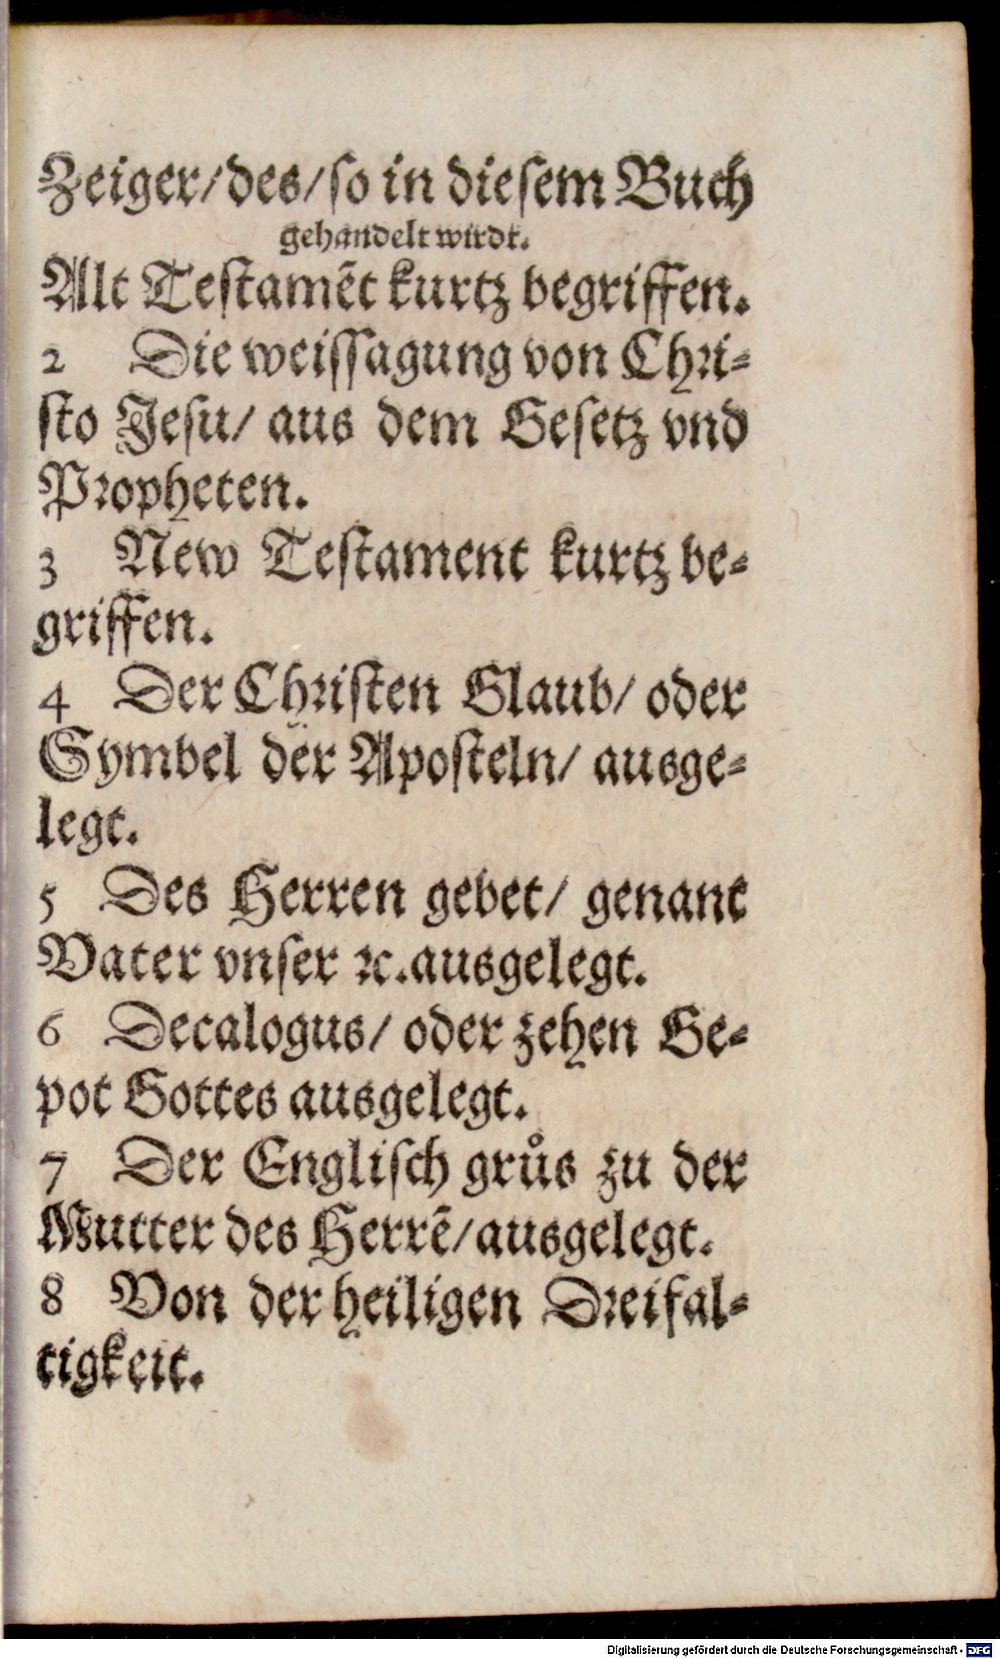 Zeiger/des/ſo in dieſem Buch
gehandelt wirdt.
Alt Teſtamẽt kurtz begriffen.
2 Die weiſſagung von Chꝛi⸗
ſto Jeſu/ aus dem Geſetz vnd
Pꝛopheten.
3 New Teſtament kurtz be⸗
griffen.
4 Der Chꝛiſten Glaub/ oder
Symbel der Apoſteln/ ausge⸗
legt.
5 Des Herren gebet/ genant
Vater vnſer ꝛc. ausgelegt.
6 Decalogus/ oder zehen Ge⸗
pot Gottes ausgelegt.
7 Der Engliſch grůs zu der
Mutter des Herrẽ/ausgelegt.
8 Von der heiligen Dꝛeifal⸗
tigkeit.
Digitalisierung gefördert durch die Deutsche Forschungsgemeinschaft - DFG